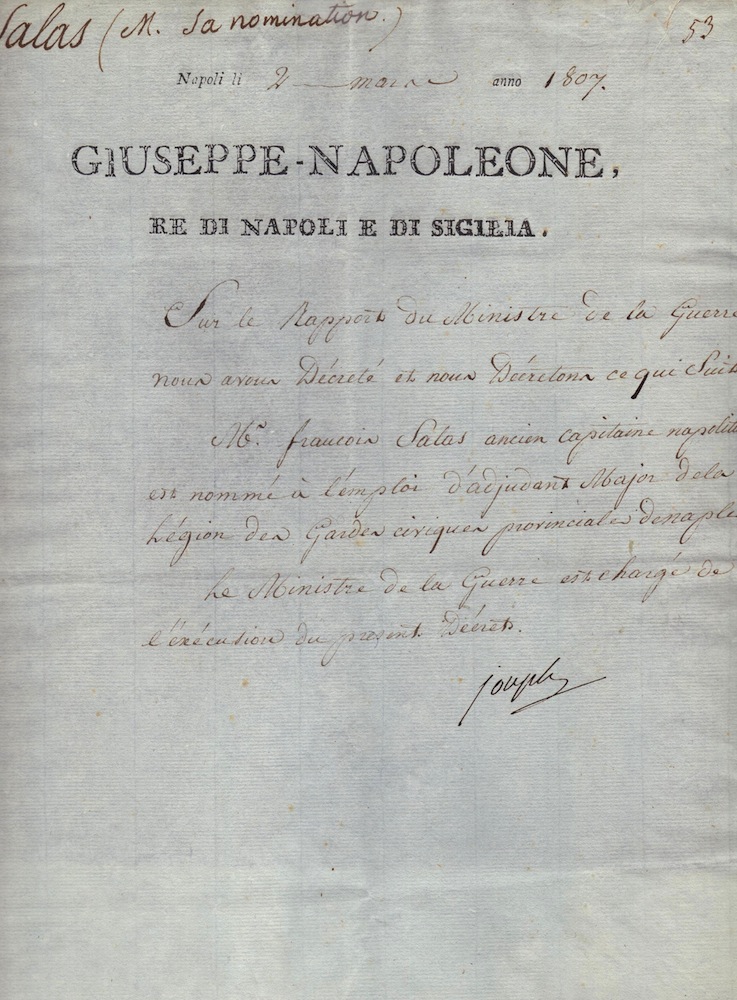 Salas (M. Sa nomination.)
53
Napoli li 2 mars anno 1807.
GIUSEPPE-NAPOLEONE,
RE DI NAPOLI E DI SICILIA.
Sur le Rapport du Ministre de la Guerre
nous avons Décrété et nous Décretons ce qui Suit
Mr. francois Salas ancien capitaine napolit
est nommé à l'emploi d'adjudant Major dela
Légion des Gardes civiques provinciale denaple
Le Ministre de la Guerre est chargé de
l'éxécution du present Décret.
joseph